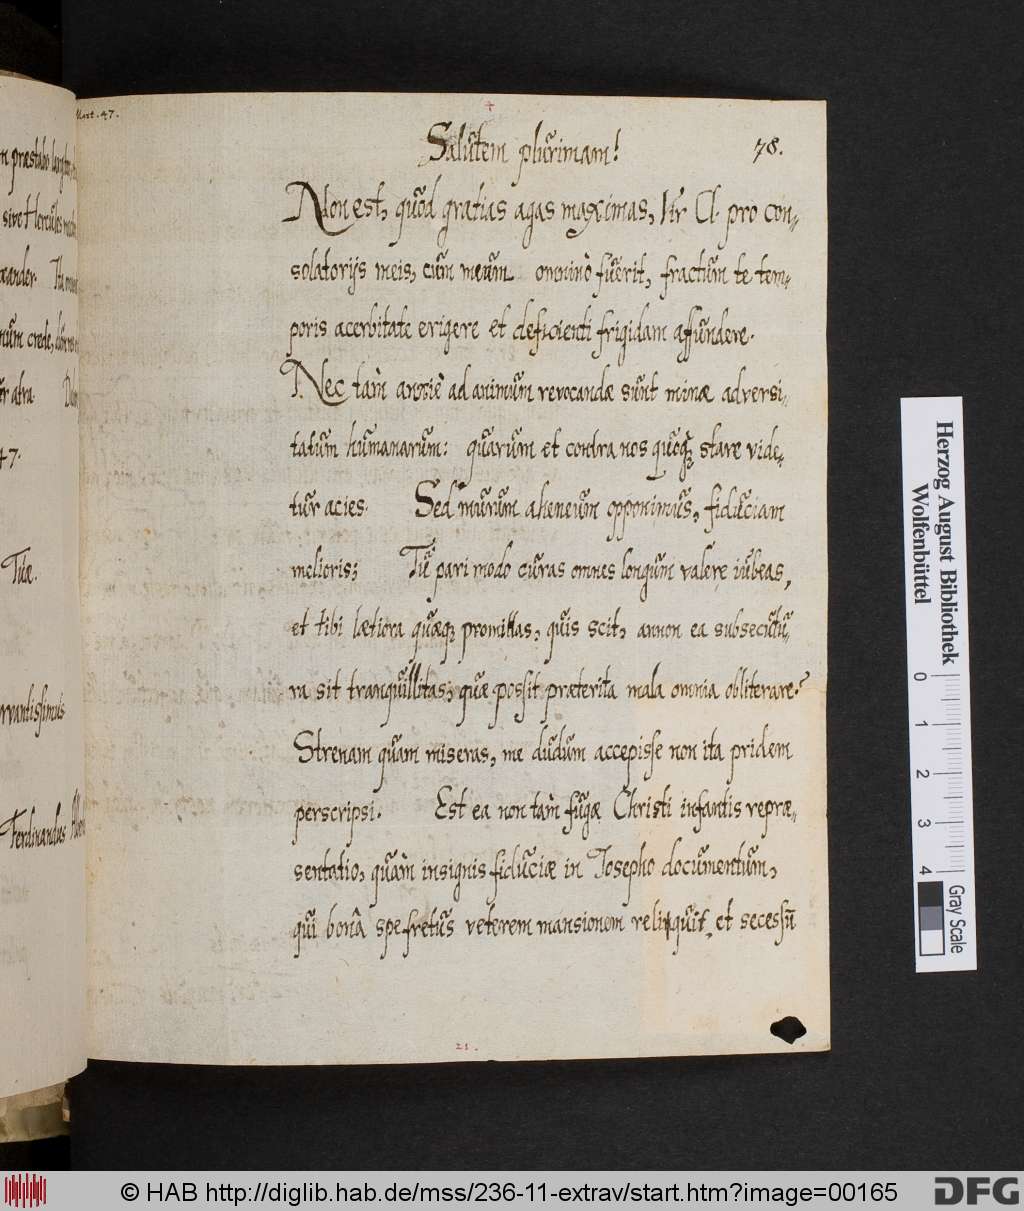 n præstabo
sive Hercules
xander. Ita
num crede,
ur atra.
47.
Tuæ.
rvantissimus
Ferdinandus
Mart. 47.
+
Salutem plurimam!
78.
Non est, quòd gratias agas maximas, Vir Cl. pro con-
solatorijs meis, cùm meum omninò fuerit, fractum te tem-
poris acerbitate erigere et deficienti frigidam affundere.
Nec tam anxiè ad animum revocandæ sunt minæ adversi-
tatum humanarum: quarum et contra nos quoq; stare vide-
tur acies. Sed murum aheneum opponimus, fiduciam
melioris; Tu pari modo curas omnes longum valere iubeas,
et tibi lætiora quæq; promittas, quis scit, annon ea subsecutu-
ra sit tranquillitas, quæ possit præterita mala omnia obliterare?
Strenam quam miseras, me dudum accepisse non ita pridem
perscripsi. Est ea non tam fugæ Christi infantis repræ-
sentatio, quàm insignis fiduciæ in Josepho documentum,
qui bonâ spe fretus veterem mansionem relinquit, et secessū
21.
Herzog August Bibliothek
Wolfenbüttel
0 1 2 3 4
Gray Scale
© HAB http://diglib.hab.de/mss/236-11-extrav/start.htm?image=00165
DFG